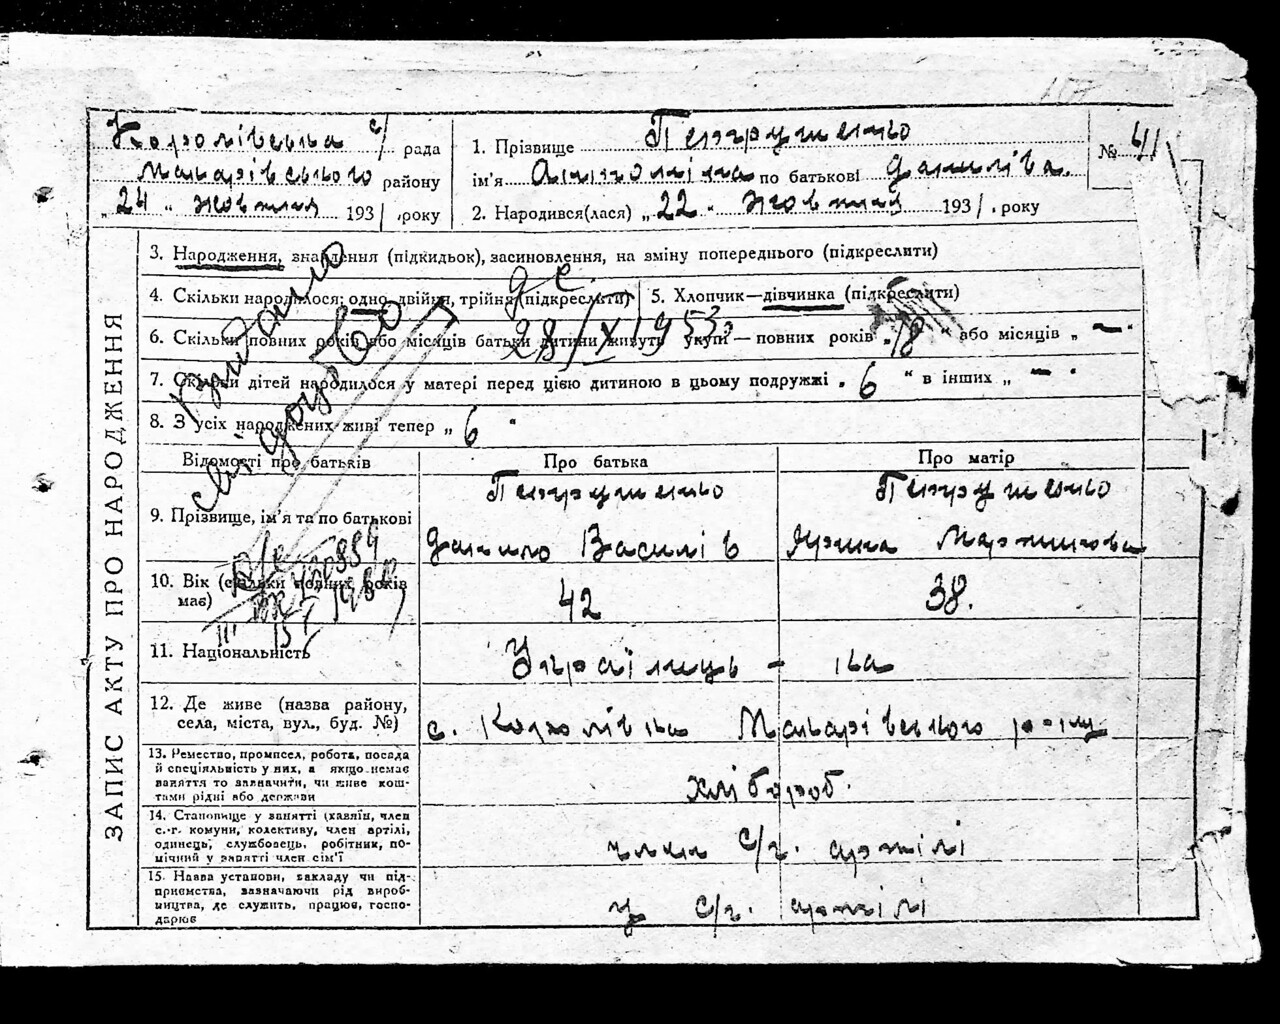 Королівська с/ рада
Макарівського району
„ 24 „ жовтня 1931 року
1. Прізвище Петрушенко
ім'я Антоніна по батькові Данилівна
2. Народився(лася) „ 22 „ жовтня 1931 року
№ 41
ЗАПИС АКТУ ПРО НАРОДЖЕННЯ
3. Народження, знайдення (підкидьок), засиновлення, на зміну попереднього (підкреслити)
4. Скільки народилося: одно, двійня, трійня (підкреслити)
5. Хлопчик—дівчинка (підкреслити)
6. Скільки повних років або місяців батьки дитини живуть укупі — повних років „ 18 “ або місяців „ — “
7. Скільки дітей народилося у матері перед цією дитиною в цьому подружжі „ 6 “ в інших „ — “
8. З усіх народжених живі тепер „ 6 “
Видано
свідоцтво
28/X 1953
Відомості про батьків
Про батька
Про матір
9. Прізвище, ім'я та по батькові
Петрушенко
Данило Василів
Петрушенко
Ярина Мартинова
10. Вік (скільки повних років має)
42
38.
11. Національність
Українець - ка
12. Де живе (назва району,
села, міста, вул., буд. №)
с. Королівка Макарівського р-ну
13. Ремество, промисел, робота, посада
й спеціяльність у них, а якщо немає
заняття то зазначити, чи живе кош-
тами рідні або держави
хлібороб.
14. Становище у занятті (хазяїн, член
с.-г. комуни, колективу, член артілі,
одинець, службовець, робітник, по-
мічний у занятті член сім'ї
член с/г. артілі
15. Назва установи, закладу чи під-
приємства, зазначаючи рід вироб-
ництва, де служить, працює, госпо-
дарює
у с/г. артілі